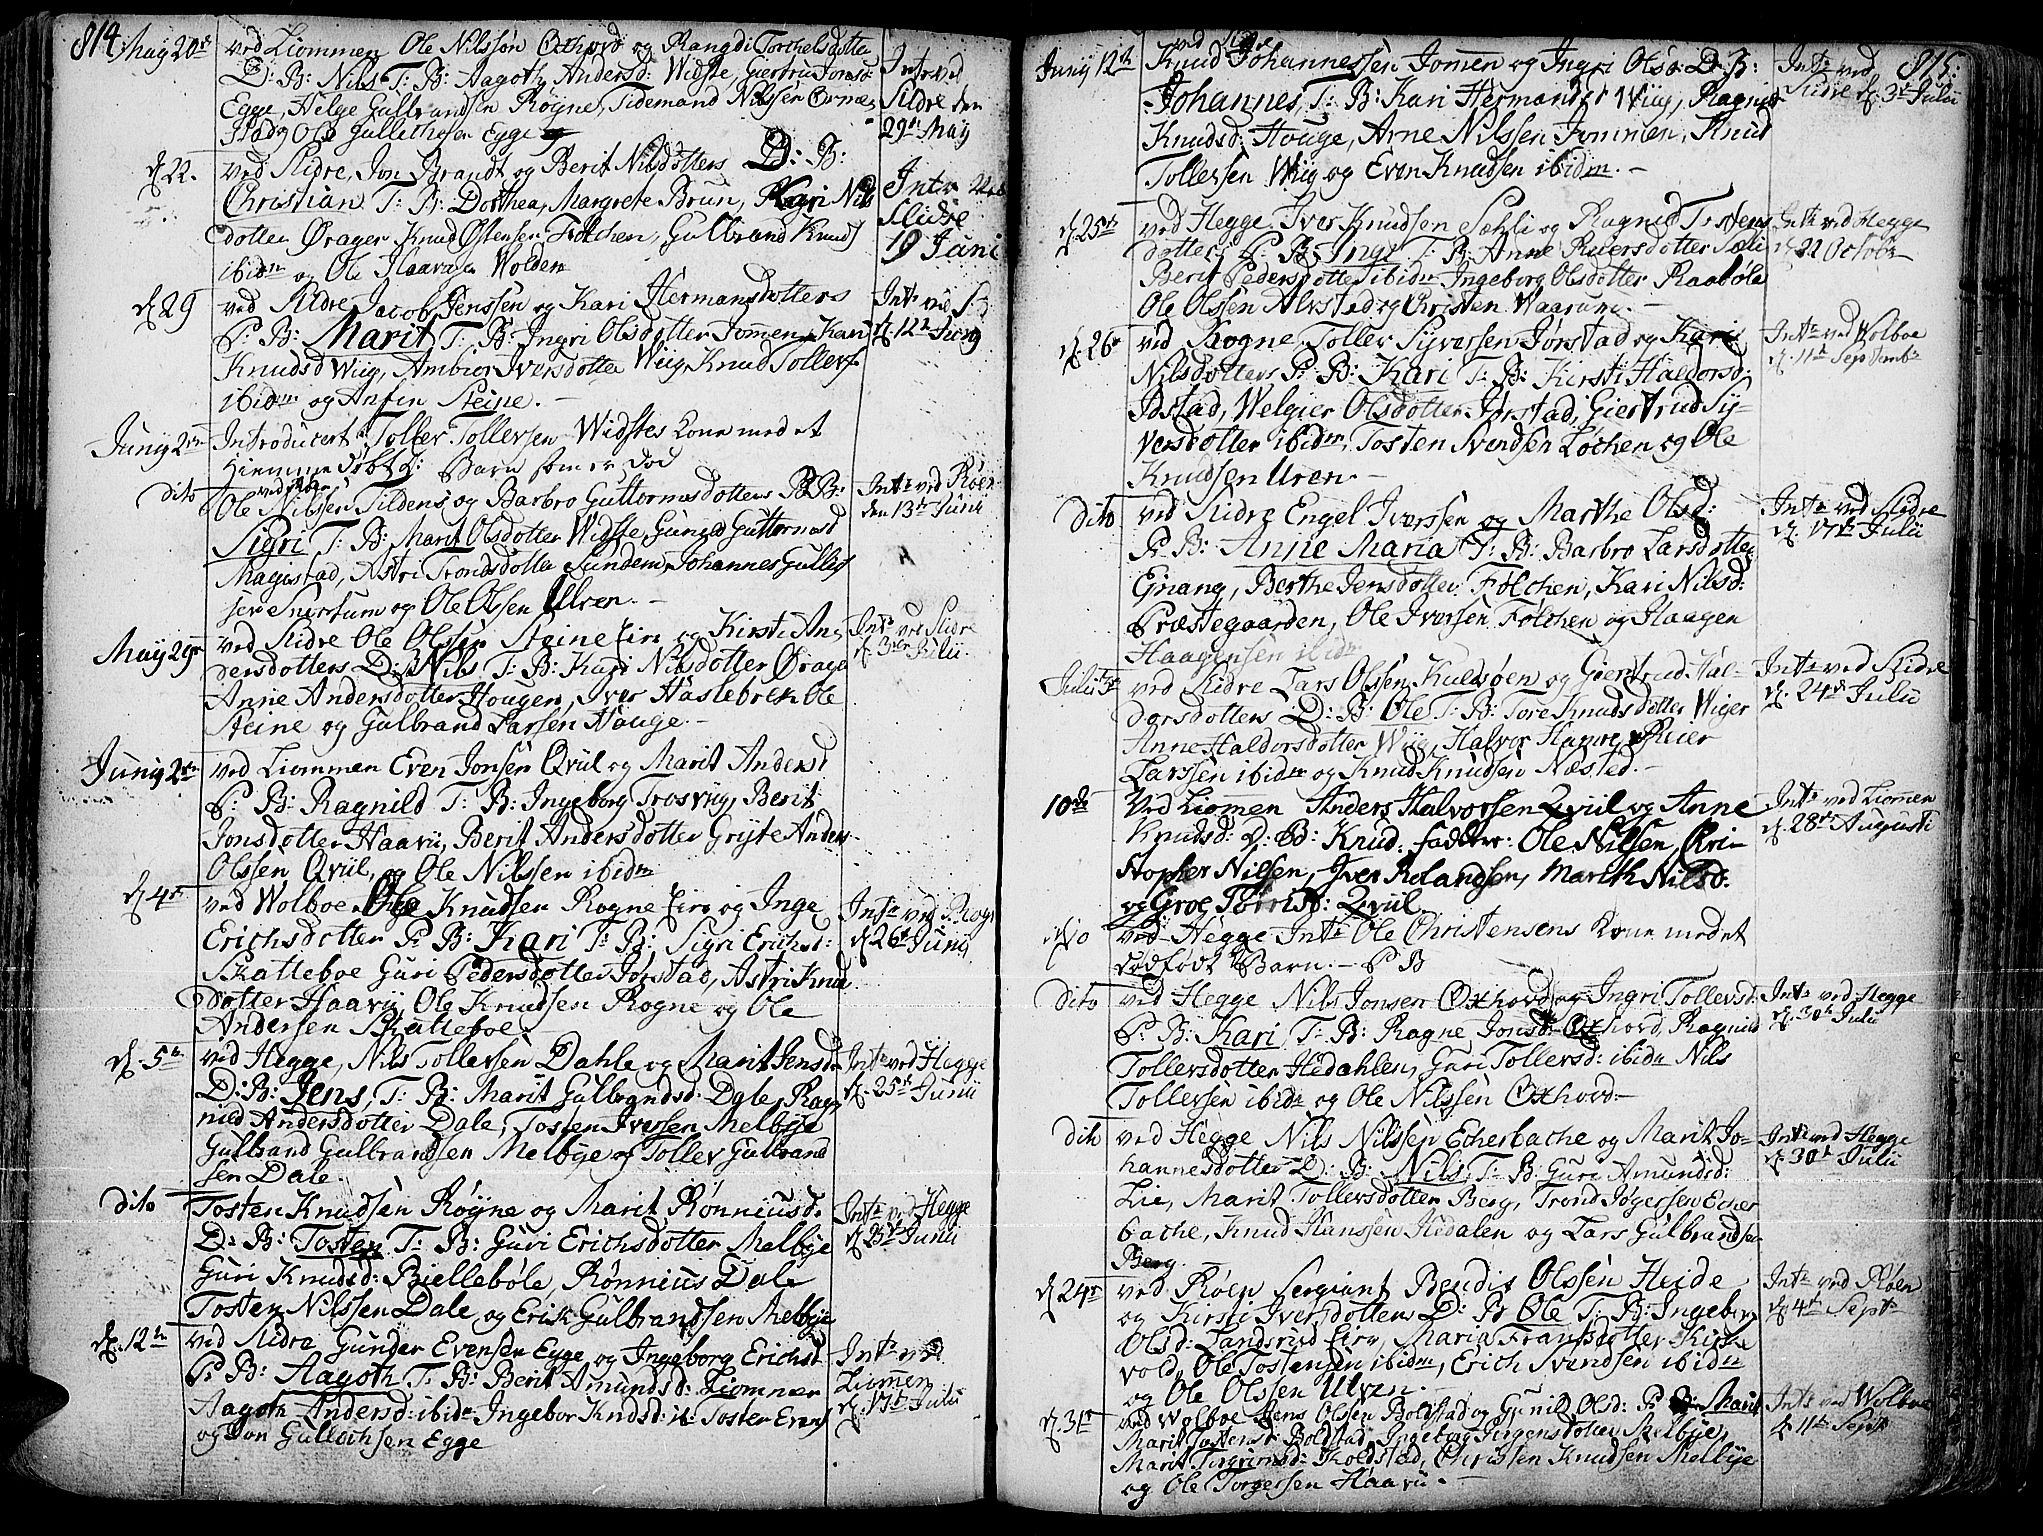 814.
May 20de
ved Liommen Ole Nilssøn Othovd og Rangdi Torchelsdotter
D: B: Nils T: B: Aagoth Andersd: Widste, Giertru Jonsd
Egge, Helge Gulbrandsen Røyne, Tidemand Nilssen
Ole Gulleichsen Egge
Intr ved
Slidre den
29de May
d. 22.
ved Slidre, Jon Brandt og Berit Nilsdotters D: B:
Christian T: B: Dorthea, Margrete Brun, Kari Nils
dotter Ørager Knud Østensen Følchen, Gulbrand Knuds
ibidm og Ole Haavrsen Wolden
Intr
Slidre
19 Juni
d. 29
ved Slidre Jacob Jenssen og Kari Hermansdotters
P: B: Marit T: B: Ingri Olsdotter Jomen, Kari
Knudsd Wiig, Ambior Iversdotter Wiig Knud Tollefs
ibidm og Anfin Steine. -
Intr ved
d. 12te Juny
Juny 2den
Introducert Toller Tollersen Widstes Kone med et
Hiemme døbt D: Barn som er død
dito
ved Røen
Ole Nilssen Tildens og Barbro Guttormsdotters P: B:
Sigri T: B: Marit Olsdotter Widste, Gunild Guttormsd
Magistad, Astri Trondsdotter Sundem, Johannes Gulleich
sen og Ole Olssen Ulven. -
Intr ved Røen
den 13de Junii
May 29de
ved Slidre Ole Olssen Steine Eie og Kirsti An
dersdotters D: B: Nils T: B: Kari Nilsdotter Ørager
Anne Andersdotter Hougen, Iver Hastebrek Ole
Steine og Gulbrand Larsen Houge. -
Intr ved Slidre
d. 3die Julii.
Juny 2den
ved Liommen Even Jonsen Qviil og Marit Andersd
P: B: Ragnild T: B: Ingeborg Trosviig, Berit
Jonsdotter Haavii, Berit Andersdotter Gryte Anders
Olssen Qviil, og Ole Nilssen ibidm
d. 4de
ved Wolboe Knudsen Rogne Eie og Inge
Erichsdotter P: B: Kari T: B: Sigri Erichsd:
Skatteboe Guri Pedersdotter Jørstad, Astri Knud
dotter Haavii Ole Knudsen Rogne og Ole
Andersen Skatteboe.
Intr ved Rogne
d. 26de Juny
d. 5te
ved Hegge, Nils Tollefsen Dahle og Marit Jensd
D: B: Jens, T: B: Marit Gulbrandsd: Dale, Rag
nild Andersdotter Dale, Tosten Iversen Melbye
Gulbrand Gulbrandsen Melbye og Tollef Gulbrand
sen Dale.
Intr ved Hegge
d. 25de Junii
dito
Tosten Knudsen Røyne og Marit Rønniusd.
D: B: Tosten T: B: Guri Erichsdotter Melbye
Guri Knudsd: Biellebøle, Rønnius Dale
Tosten Nilssen Dale og Erik Gulbrandsen Melbye
Intr ved Hegge
d. 25de Junii
d. 12te
ved Slidre Gunder Evensen Egge og Ingeborg Erichsd
P: B: Aagoth T: B: Berit Amundsd: Liommen
Aagoth Andersd: ibidm Ingebor Kndsd: ib: Tosten Evens
og Jon Gulleichsen Egge
Intr ved
Liomen
d. 17de Julii
815.
Juny 12te
Knud Johannessen Jomen og Ingri Olsd: D: B:
Johannes, T: B: Kari Hermandsd Wiig, Ragnild
Knudsd: Houge, Arne Nilssen Jommen, Knud
Tollefsen Wiig og Even Knudsen ibidm. -
Intr ved
Slidre d. 3die Julii
d. 25de
ved Hegge Iver Knudsen Sæhli og Ragnild Tostens
dotter P: B: Inge T: B: Anne Reiersdotter Sæli
Berit Pedersdotter ibidm Ingeborg Olsdotter Raabøle
Ole Olssen Alvstad og Christen Waarum. -
Intr ved Hegge
d. 22 October
d. 26de
ved Rogne, Toller Syversen Jørstad og Kari
Nilsdotters P: B: Kari T: B: Kirsti Haldorsd:
Jdstad, Welgier Olsdotter Jørstad, Giertrud Sy-
versdotter ibidm, Tosten Svendsen Løchen og Ole
Knudsen Uren. -
Intr ved Wolboe
d. 11te Septemb:
dito
ved Slidre Engel Iverssen og Marthe Olsd:
P: B: Anne Maria T: B: Barbro Larsdotter
Gnang, Berthe Jensdotter Følchen, Kari Nilsd:
Præstegaarden, Ole Iversen Følchen og Haagen
Haagensen ibidm
Intr ved Slidre
d. 17de Julii
Julii 3die
ved Slidre Lars Olssen Kuldsøen og Giertrud Hal-
dorsdotters D: B: Ole T: B: Tore Knudsdotter Wiger
Anne Haldorsdotter Wiig, Halvor Hamre, Reier
Larssen ibidm og Knud Knudsen Næsted. -
Intr ved Slidre
d. 24de Julii
10de
Ved Liomen Anders Halvorsen Qviil og Anne
Knudsd: D: B: Knud. Faddere: Ole Nilsen, Cri-
stopher Nilsen, Iver Rolandsen, Marith Nilsd:
og Groe Torrisd: Qviil.
Intr ved Liomen
d. 28de Augusti
d. 10
ved Hegge Intr Ole Christensens Kone med et
dødfødt Barn. - P B
dito
ved Hegge Nils Jonsen Othovd og Ingri Tollefsd:
P: B: Kari T: B: Ragne Jonsd: Othovd, Ragnild
Tollefsdotter Hedahlen, Guri Tollefsd: ibidm Nils
Tollefsen ibidm og Ole Nilssen Othovd. -
Intr ved Hegge
d. 30te Julii
dito
ved Hegge Nils Nilssen Echerbache og Marit Jo-
hannesdotter D: B: Nils, T: B: Guri Amundsd:
Lie, Marit Tollefsdotter Berg, Trond Jøgersen Echer
bache, Knud Hanssen Hedalen og Lars Gulbrandsen
Berg.
Intr ved Hegge
d. 30te Julii
d. 24de
ved Røen Sergiant Bendis Olssen Heide
og Kirsti Iversdotters D: B Ole T: B: Ingeborg
Olsd: Landsrud Eie, Maria Fransdotter Kirke
vold, Ole Tostensen ibidm, Erich Svendsen ibidm
og Ole Olssen Ulven. -
Intr ved Røen
d. 4de Septr
d. 31te
ved Wolboe Jens Olssen Boldstad og Gunild Olsd: P: B: Marit
Marit Tostensd: Boldstad, Ingeborg Jørgensdotter Melbye,
Marit Torgrimsd: Koldstad, Christen Knudsen Melbye
og Ole Torgersen Haavii. -
Intr ved Wolboe
d. 11te Septr